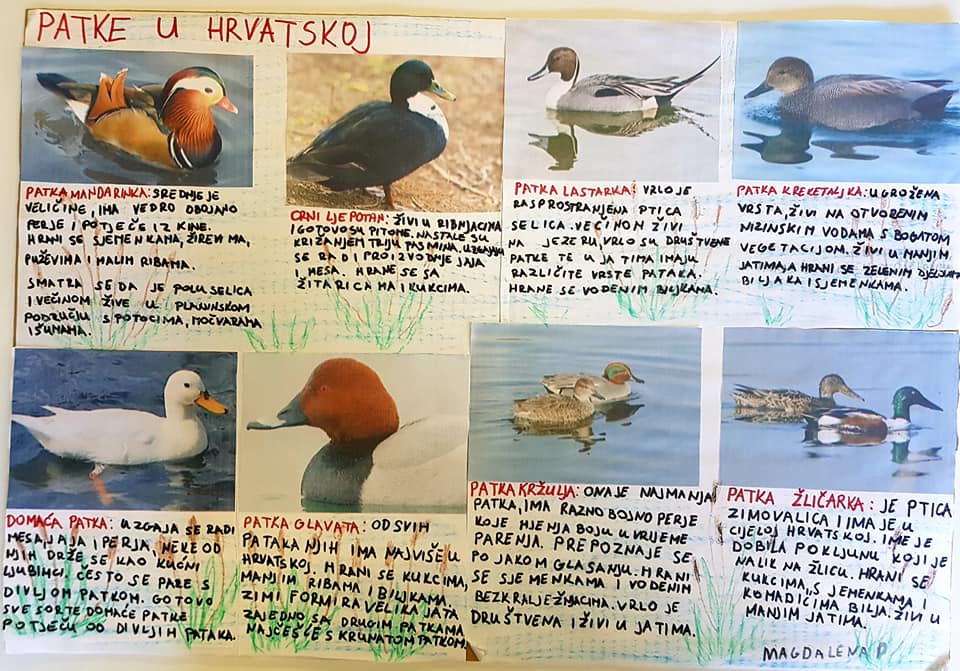 PATKE U HRVATSKOJ
PATKA MANDARINKA: SREDNJE JE
VELIČINE, IMA VEDRO OBOJANO
PERJE I POTJEČE IZ KINE.
HRANI SE SJEMENKAMA, ŽIREVIMA,
PUŽEVIMA I MALIH RIBAMA.
SMATRA SE DA JE POLU SELICA
I VEĆINOM ŽIVE U PLANINSKOM
PODRUČJU S POTOCIMA, MOČVARAMA
I ŠUMAMA.
CRNI LJEPOTAN: ŽIVI U RIBNJACIMA
I GOTOVO SU PITOME. NASTALE SU
KRIŽANJEM TRIJU PASMINA. UZGAJAJU
SE RADI PROIZVODNJE JAJA
I MESA. HRANE SE SA
ŽITARICAMA I KUKCIMA.
PATKA LASTARKA: VRLO JE
RASPROSTRANJENA PTICA
SELICA. VEĆINOM ŽIVI
NA JEZERU, VRLO SU DRUŠTVENE
PATKE TE U JATIMA IMAJU
RAZLIČITE VRSTE PATAKA.
HRANE SE VODENIM BILJKAMA.
PATKA KREKETALJKA: UGROŽENA
VRSTA, ŽIVI NA OTVORENIM
NIZINSKIM VODAMA S BOGATOM
VEGETACIJOM. ŽIVI U MANJIM
JATIMA, A HRANI SE ZELENIM DJELOVIMA
BILJAKA I SJEMENKAMA.
DOMAĆA PATKA: UZGAJA SE RADI
MESA, JAJA I PERJA, NEKE OD
NJIH DRŽE SE KAO KUĆNI
LJUBIMCI. ČESTO SE PARE S
DIVLJOM PATKOM. GOTOVO
SVE SORTE DOMAĆE PATKE
POTJEČU OD DIVLJIH PATAKA.
PATKA GLAVATA: OD SVIH
PATAKA NJIH IMA NAJVIŠE U
HRVATSKOJ. HRANI SE KUKCIMA,
MANJIM RIBAMA I BILJKAMA.
ZIMI FORMIRA VELIKA JATA
ZAJEDNO SA DRUGIM PATKAMA
NAJČEŠĆE S KRUNATOM PATKOM.
PATKA KRŽULJA: ONA JE NAJMANJA
PATKA, IMA RAZNO BOJNO PERJE
KOJE MJENJA BOJU U VRIJEME
PARENJA. PREPOZNAJE SE
PO JAKOM GLASANJU. HRANI
SE SJEMENKAMA I VODENIM
BEZKRALJEŽNJACIMA. VRLO JE
DRUŠTVENA I ŽIVI U JATIMA.
PATKA ŽLIČARKA: JE PTICA
ZIMOVALICA I IMA JE U
CIJELOJ HRVATSKOJ. IME JE
DOBILA PO KLJUNU KOJI JE
NALIK NA ŽLICU. HRANI SE
KUKCIMA, SJEMENKAMA I
KOMADIĆIMA BILJA. ŽIVI U
MANJIM JATIMA.
MAGDALENA P